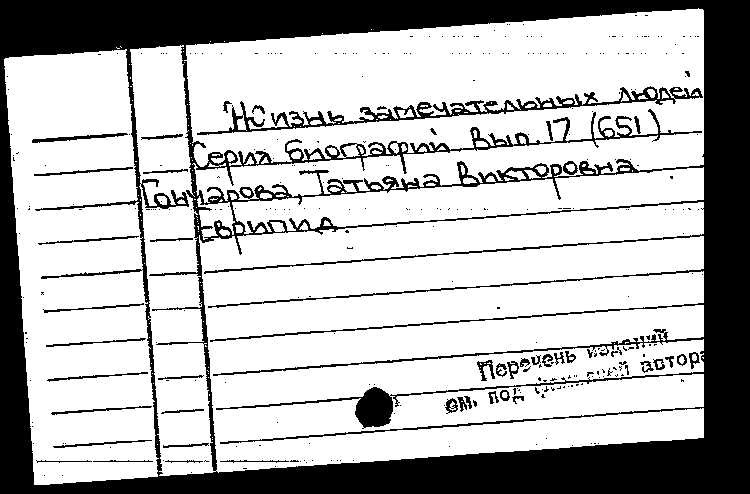 Жизнь замечательных людей
Серия биографий Вып. 17 (651).
Гончарова, Татьяна Викторовна
Еврипид.
Перечень изданий
см. под фамилией автора